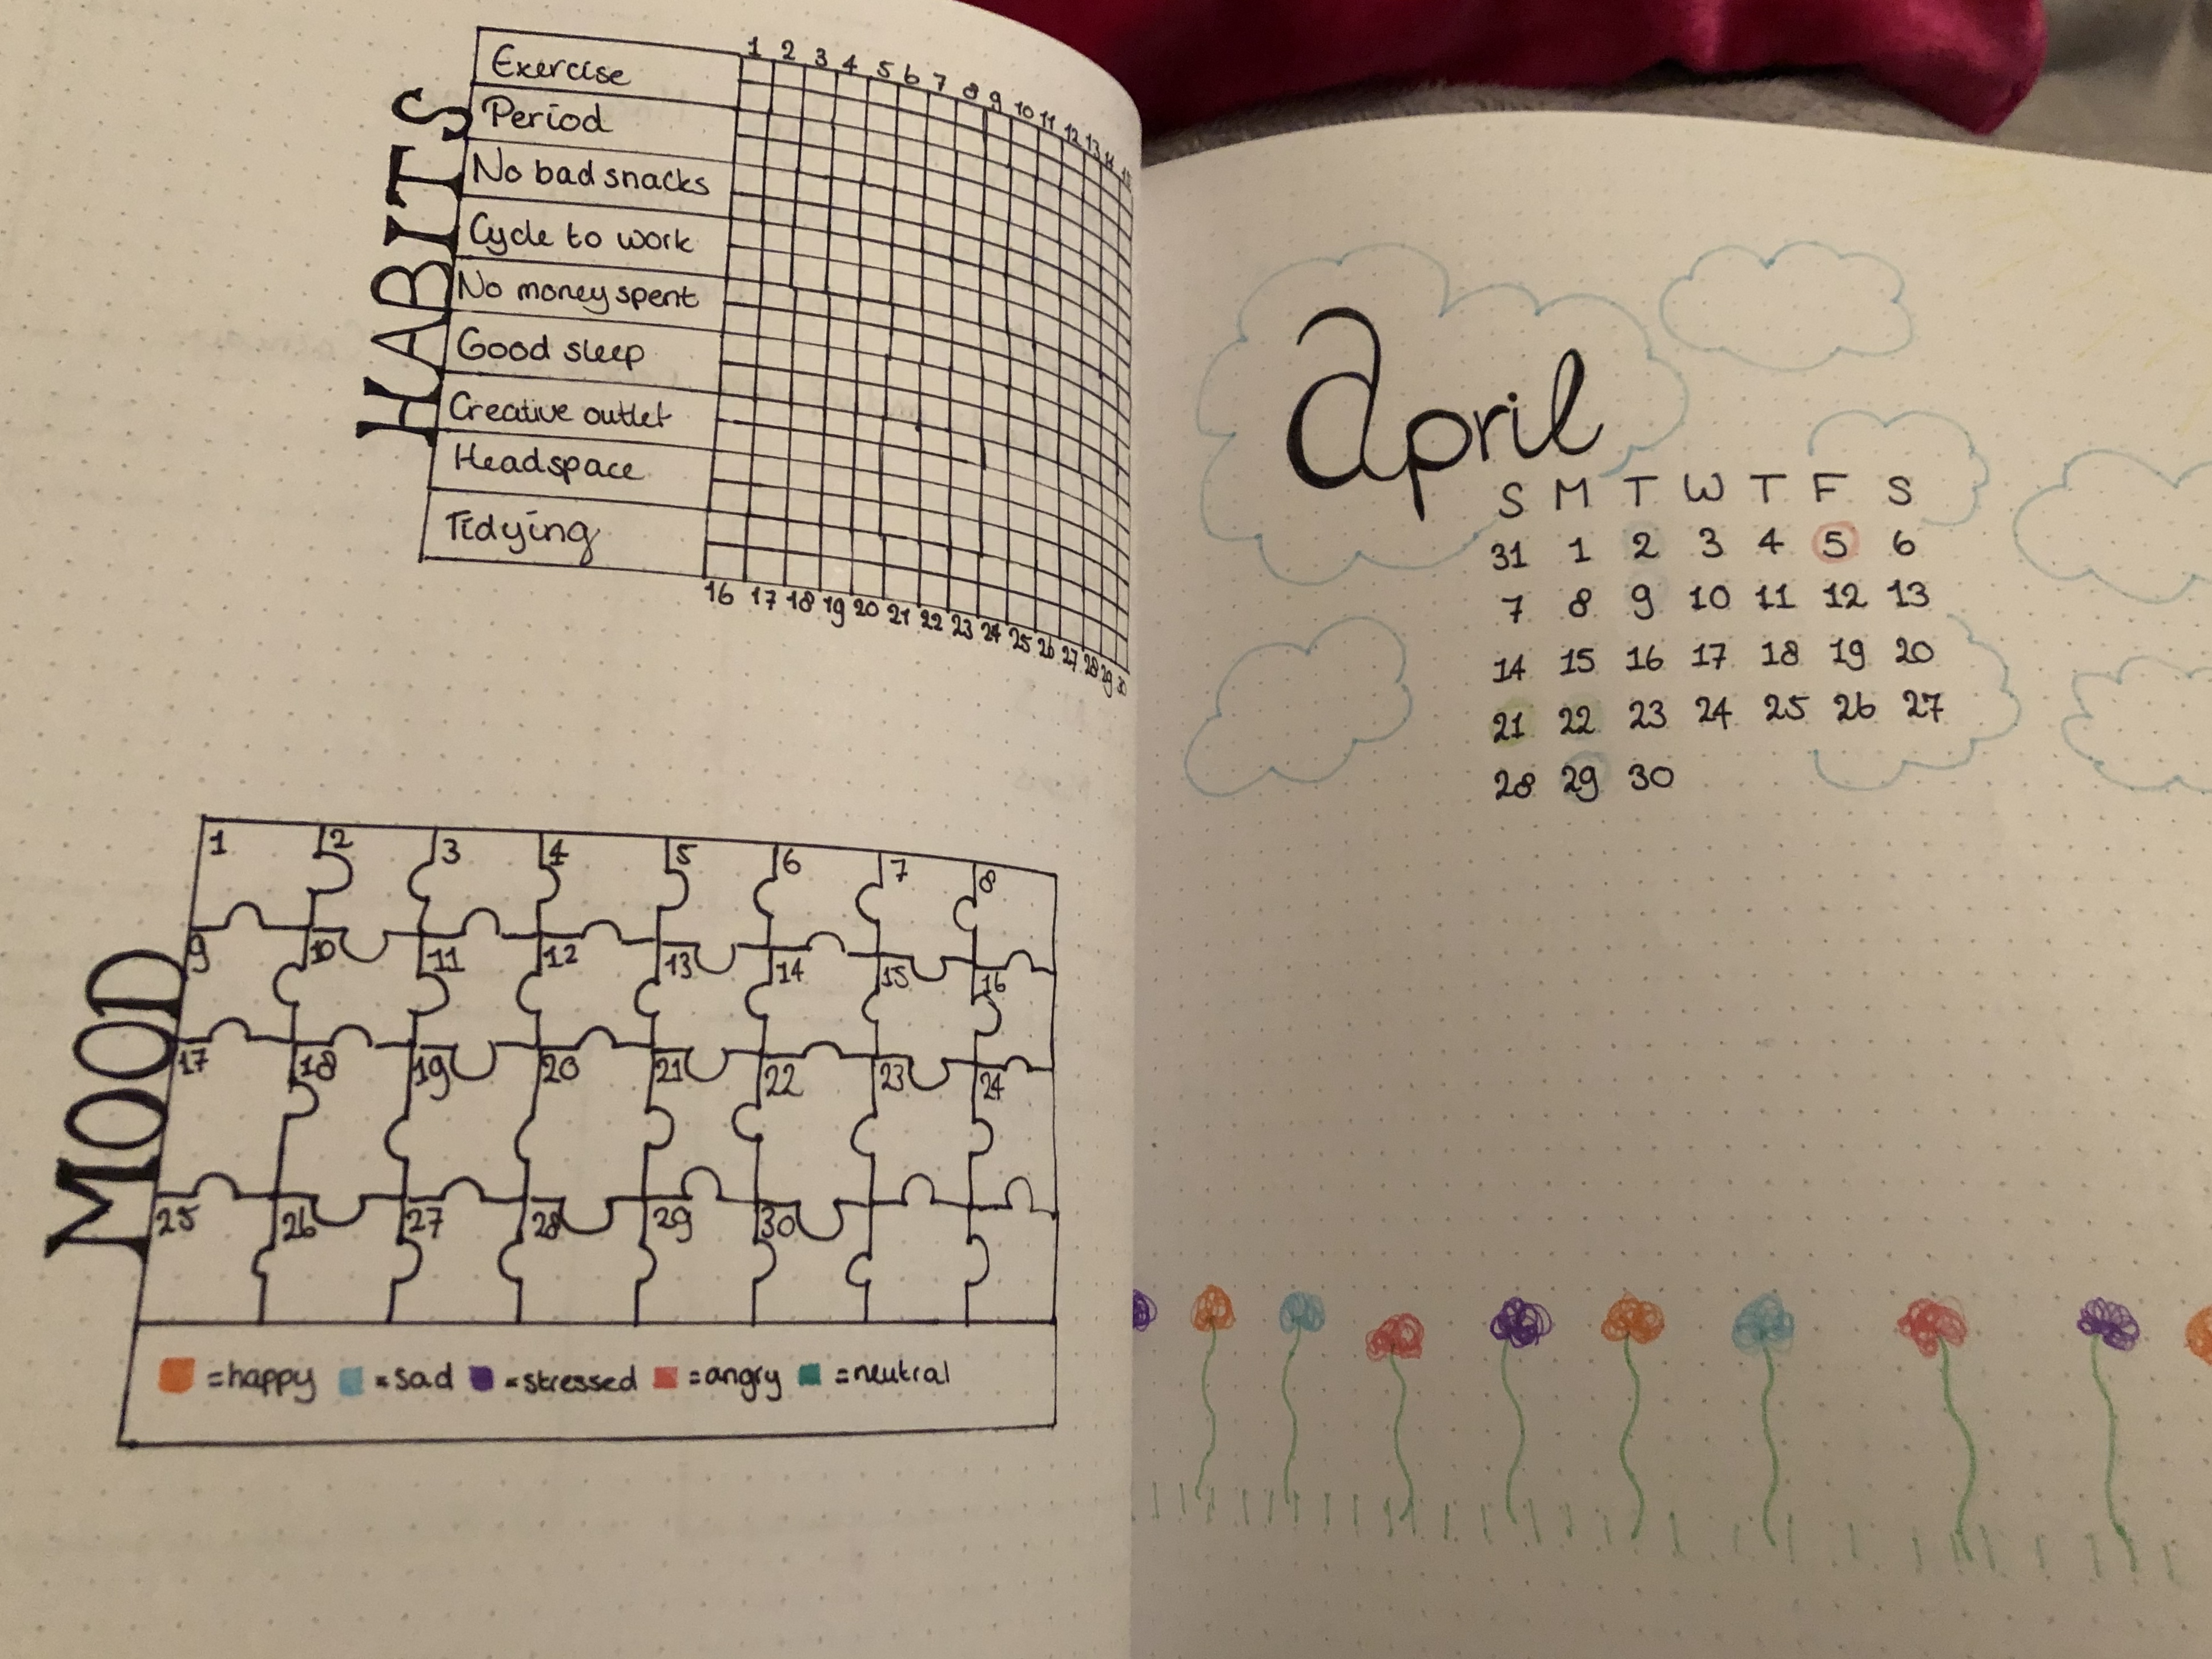 HABITS
1 2 3 4 5 6 7 8 9 10 11 12 13 14 15
Exercise
Period
No bad snacks
Cycle to work
No money spent
Good sleep
Creative outlet
Headspace
Tidying
16 17 18 19 20 21 22 23 24 25 26 27 28 29 30
MOOD
1 2 3 4 5 6 7 8
9 10 11 12 13 14 15 16
17 18 19 20 21 22 23 24
25 26 27 28 29 30
=happy =sad =stressed =angry =neutral
april
S M T W T F S
31 1 2 3 4 5 6
7 8 9 10 11 12 13
14 15 16 17 18 19 20
21 22 23 24 25 26 27
28 29 30